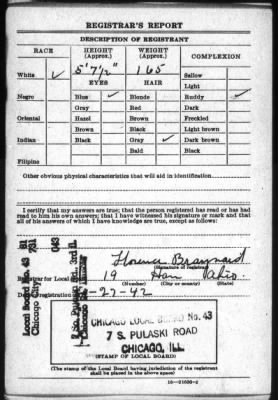 REGISTRAR'S REPORT
DESCRIPTION OF REGISTRANT
RACE HEIGHT (Approx.) WEIGHT (Approx.) COMPLEXION
White ✓ 5' 7½" 165 Sallow
EYES HAIR Light
Negro Blue ✓ Blonde Ruddy ✓
Gray Red Dark
Oriental Hazel Brown Freckled
Brown Black Light brown
Indian Black Gray ✓ Dark brown
Bald Black
Filipino
Other obvious physical characteristics that will aid in identification
I certify that my answers are true; that the person registered has read or has had
read to him his own answers; that I have witnessed his signature or mark and that
all of his answers of which I have knowledge are true, except as follows:
Local Board No. 43 31
Chicago City 731
043
Florence
(Signature of registrar)
Registrar for Local 19
(Number) (City or county) (State)
registration 4-27-42
CHICAGO LOCAL BOARD No. 43
7 S. PULASKI ROAD
CHICAGO, ILL.
(STAMP OF LOCAL BOARD)
(The stamp of the Local Board having jurisdiction of the registrant
shall be placed in the above space)